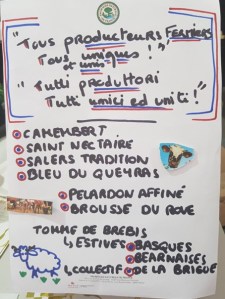 "Tous producteurs fermiers
Tous uniques
et unis !"
"Tutti produttori
Tutti unici ed uniti !"
CAMEMBERT
SAINT NECTAIRE
SALERS TRADITION
BLEU DU QUEYRAS
PELARDON AFFINÉ
BROUSSE DU ROVE
TOMME DE BREBIS
↳ ESTIVES BASQUES
BEARNAISES
↳ COLLECTIF DE LA BRIGUE